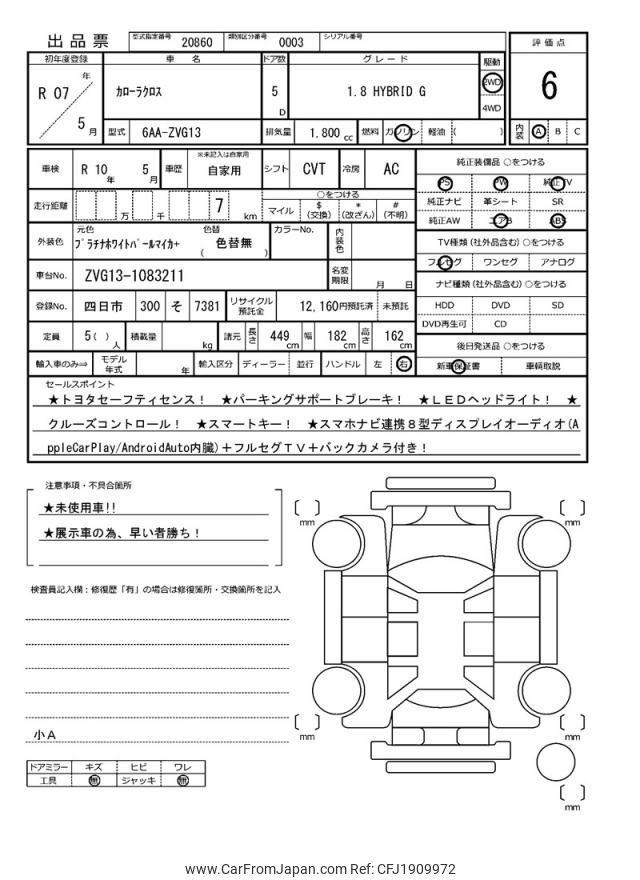 出品票 型式指定番号 20860 類別区分番号 0003 シリアル番号
評価点
6
内装 A B C
初年度登録 車名 ドア数 グレード 駆動
R 07 年 5 月 カローラクロス 5 D 1.8 HYBRID G 2WD 4WD
型式 6AA-ZVG13 排気量 1.800 cc 燃料 ガソリン 軽油 ( )
車検 R 10 年 5 月 車歴 ※未記入は自家用 自家用 シフト CVT 冷房 AC
走行距離 万 千 7 km
○をつける
マイル $(交換) *(改ざん) #(不明)
外装色 元色 プラチナホワイトパールマイカ+ 色替 ( 色替無 ) カラーNo. 内装色
車台No. ZVG13-1083211 名変期限 月 日
登録No. 四日市 300 そ 7381 リサイクル預託金 12,160円預託済 未預託
定員 5( )人 積載量 kg 諸元 長さ 449 cm 幅 182 cm 高さ 162 cm
輸入車のみ⇒ モデル年式 年 輸入区分 ディーラー 並行 ハンドル 左 右
純正装備品 ○をつける
PS PW 純正TV
純正ナビ 革シート SR
純正AW エアB ABS
TV種類(社外品含む)○をつける
フルセグ ワンセグ アナログ
ナビ種類(社外品含む)○をつける
HDD DVD SD
DVD再生可 CD
後日発送品 ○をつける
新車保証書 車輌取説
セールスポイント
★トヨタセーフティセンス! ★パーキングサポートブレーキ! ★LEDヘッドライト! ★
クルーズコントロール! ★スマートキー! ★スマホナビ連携8型ディスプレイオーディオ(A
ppleCarPlay/AndroidAuto内臓)+フルセグTV+バックカメラ付き!
注意事項・不具合箇所
★未使用車!!
★展示車の為、早い者勝ち!
検査員記入欄:修復歴「有」の場合は修復箇所・交換箇所を記入
小A
ドアミラー キズ ヒビ ワレ
工具 無 ジャッキ 無
mm
mm
mm
mm
mm
www.CarFromJapan.com Ref: CFJ1909972